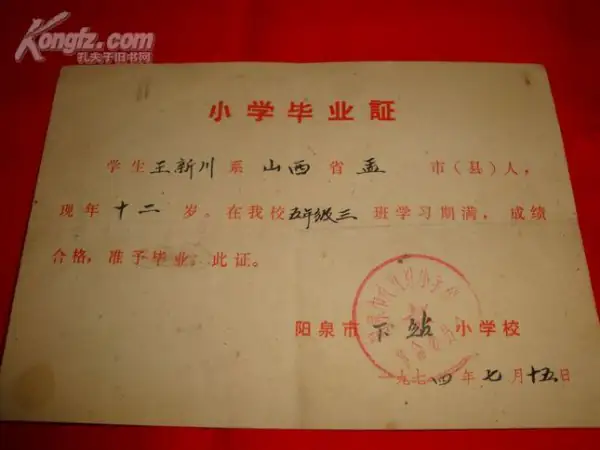 Kongfz.com
孔夫子旧书网
小学毕业証
学生王新川系山西省孟市(县)人,
现年十二岁。在我校五年级三班学习期满,成绩
合格,准予毕业。此证。
阳泉市下站小学校
一九七四年七月十五日